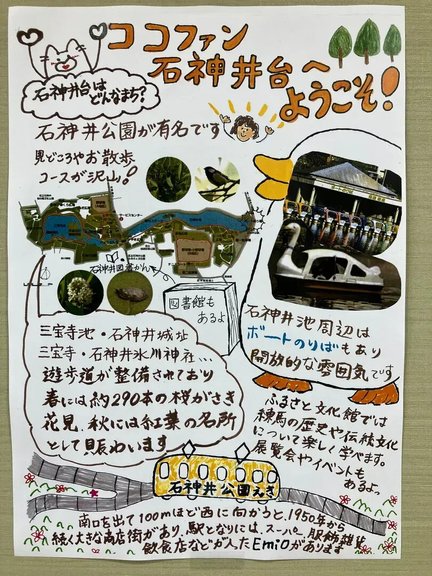 ココファン
石神井台へ
ようこそ!
石神井台は
どんなまち?
石神井公園が有名です
見どころやお散歩
コースが沢山!
石神井図書かんも
図書館も
あるよ
三宝寺池・石神井城址
三宝寺・石神井氷川神社…
遊歩道が整備されており
春には約290本の桜がさき
花見、秋には紅葉の名所
として賑わいます
石神井池周辺は
ボートのりばもあり
開放的な雰囲気です
ふるさと文化館では
練馬の歴史や伝統文化
について楽しく学べます。
展覧会やイベントも
あるよっ
石神井公園えき
南口を出て100mほど西に向かうと、1950年から
続く大きな商店街があり、駅となりには、スーパー、服飾雑貨
飲食店などが入ったEmiOがあります